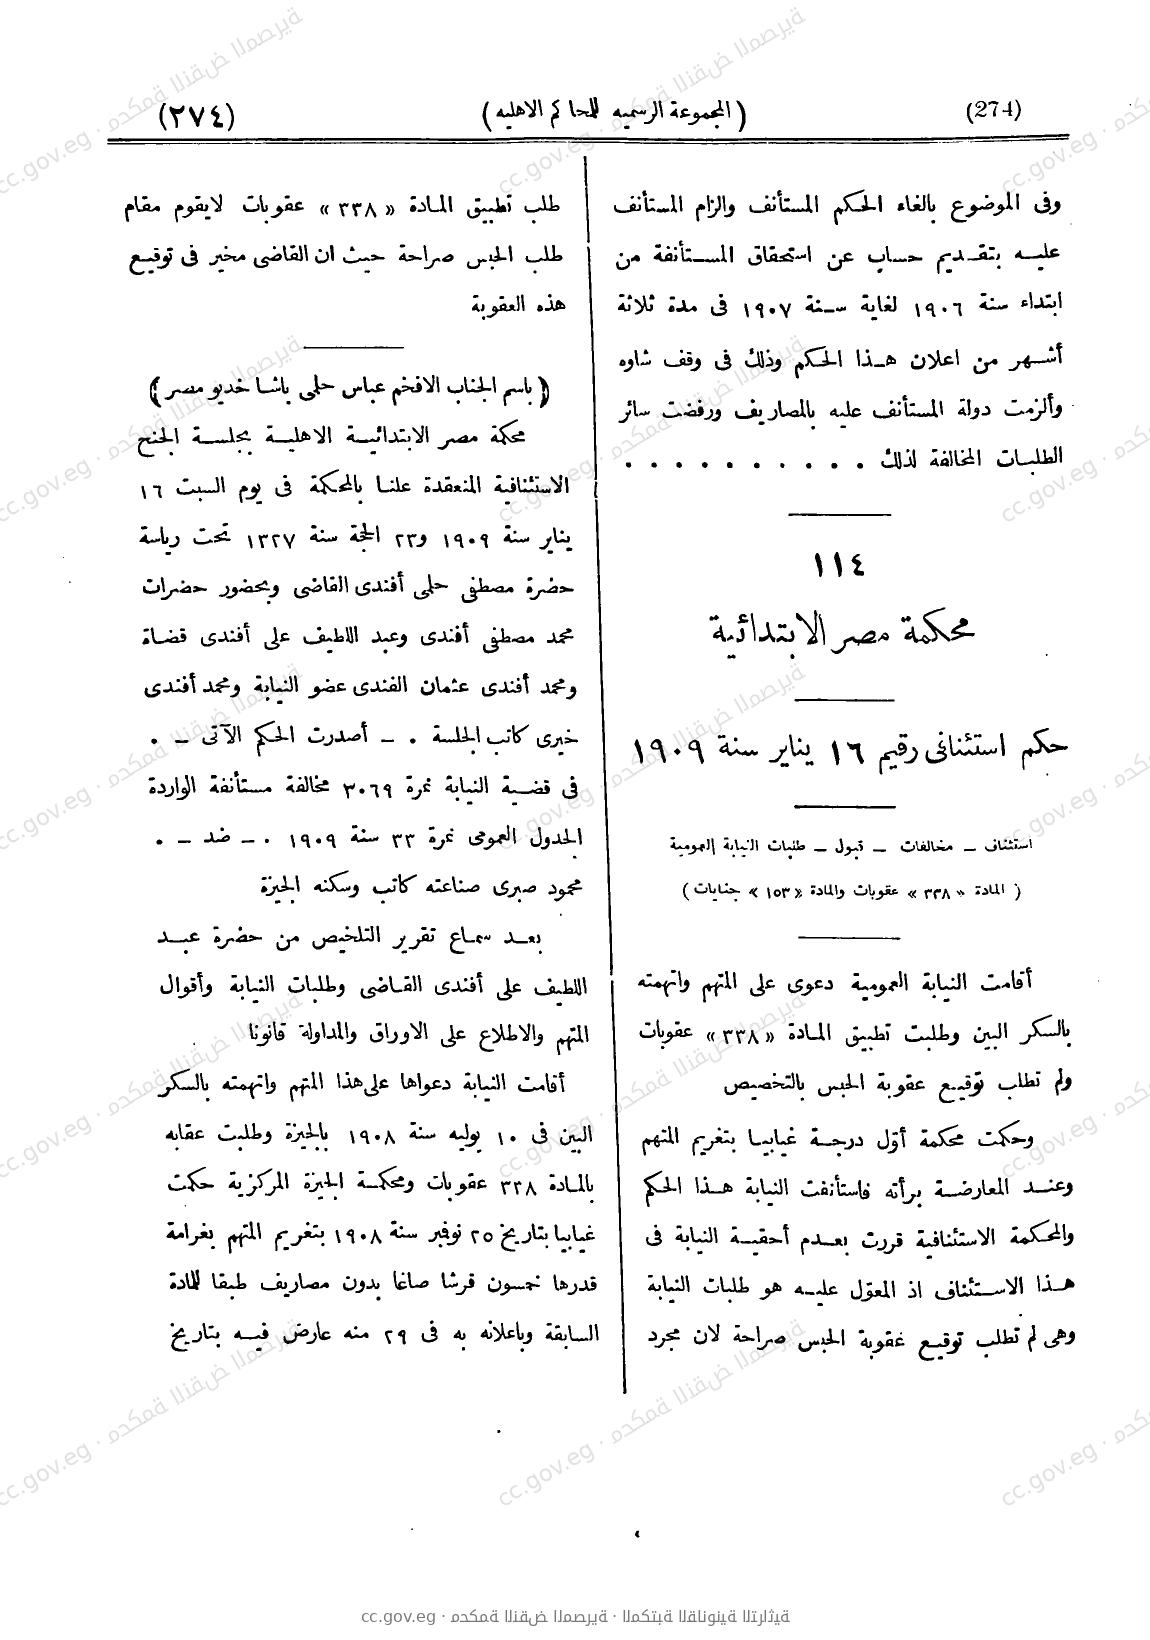 (274)
(المجموعة الرسميه للمحاكم الاهليه)
(٢٧٤)
وفى الموضوع بالغاء الحكم المستأنف والزام المستأنف
عليه بتقديم حساب عن استحقاق المستأنفة من
ابتداء سنة ١٩٠٦ لغاية سنة ١٩٠٧ فى مدة ثلاثة
أشهر من اعلان هذا الحكم وذلك فى وقف شاوه
وألزمت دولة المستأنف عليه بالمصاريف ورفضت سائر
الطلبات المخالفة لذلك . . . . . . . . . .
١١٤
محكمة مصر الابتدائية
حكم استئنافى رقيم ١٦ يناير سنة ١٩٠٩
استئناف – مخالفات – قبول – طلبات النيابة العمومية
( المادة « ٣٣٨ » عقوبات والمادة « ١٥٣ » جنايات )
أقامت النيابة العمومية دعوى على المتهم واتهمته
بالسكر البين وطلبت تطبيق المادة « ٣٣٨ » عقوبات
ولم تطلب توقيع عقوبة الحبس بالتخصيص
وحكمت محكمة أوّل درجة غيابيا بتغريم المتهم
وعند المعارضة برأته فاستأنفت النيابة هذا الحكم
والمحكمة الاستئنافية قررت بعدم أحقية النيابة فى
هذا الاستئناف اذ المعوّل عليه هو طلبات النيابة
وهى لم تطلب توقيع عقوبة الحبس صراحة لان مجرد
طلب تطبيق المادة « ٣٣٨ » عقوبات لايقوم مقام
طلب الحبس صراحة حيث ان القاضى مخير فى توقيع
هذه العقوبة
( باسم الجناب الافخم عباس حلمى باشا خديو مصر )
محكمة مصر الابتدائية الاهلية بجلسة الجنح
الاستئنافية المنعقدة علنا بالمحكمة فى يوم السبت ١٦
يناير سنة ١٩٠٩ و٢٣ الحجة سنة ١٣٢٧ تحت رياسة
حضرة مصطفى حلمى أفندى القاضى وبحضور حضرات
محمد مصطفى أفندى وعبد اللطيف على أفندى قضاة
ومحمد أفندى عثمان الفندى عضو النيابة ومحمد أفندى
خيرى كاتب الجلسة . – أصدرت الحكم الآتى – .
فى قضية النيابة نمرة ٣٠٦٩ مخالفة مستأنفة الواردة
الجدول العمومى نمرة ٣٣ سنة ١٩٠٩ . – ضد – .
محمود صبرى صناعته كاتب وسكنه الجيزة
بعد سماع تقرير التلخيص من حضرة عبد
اللطيف على أفندى القاضى وطلبات النيابة وأقوال
المتهم والاطلاع على الاوراق والمداولة قانونا
أقامت النيابة دعواها على هذا المتهم واتهمته بالسكر
البين فى ١٠ يوليه سنة ١٩٠٨ بالجيزة وطلبت عقابه
بالمادة ٣٣٨ عقوبات ومحكمة الجيزة المركزية حكمت
غيابيا بتاريخ ٢٥ نوفبر سنة ١٩٠٨ بتغريم المتهم بغرامة
قدرها خمسون قرشا صاغا بدون مصاريف طبقا للمادة
السابقة وباعلانه به فى ٢٩ منه عارض فيه بتاريخ
cc.gov.eg · محكمة النقض المصرية · المكتبة القانونية التراثية